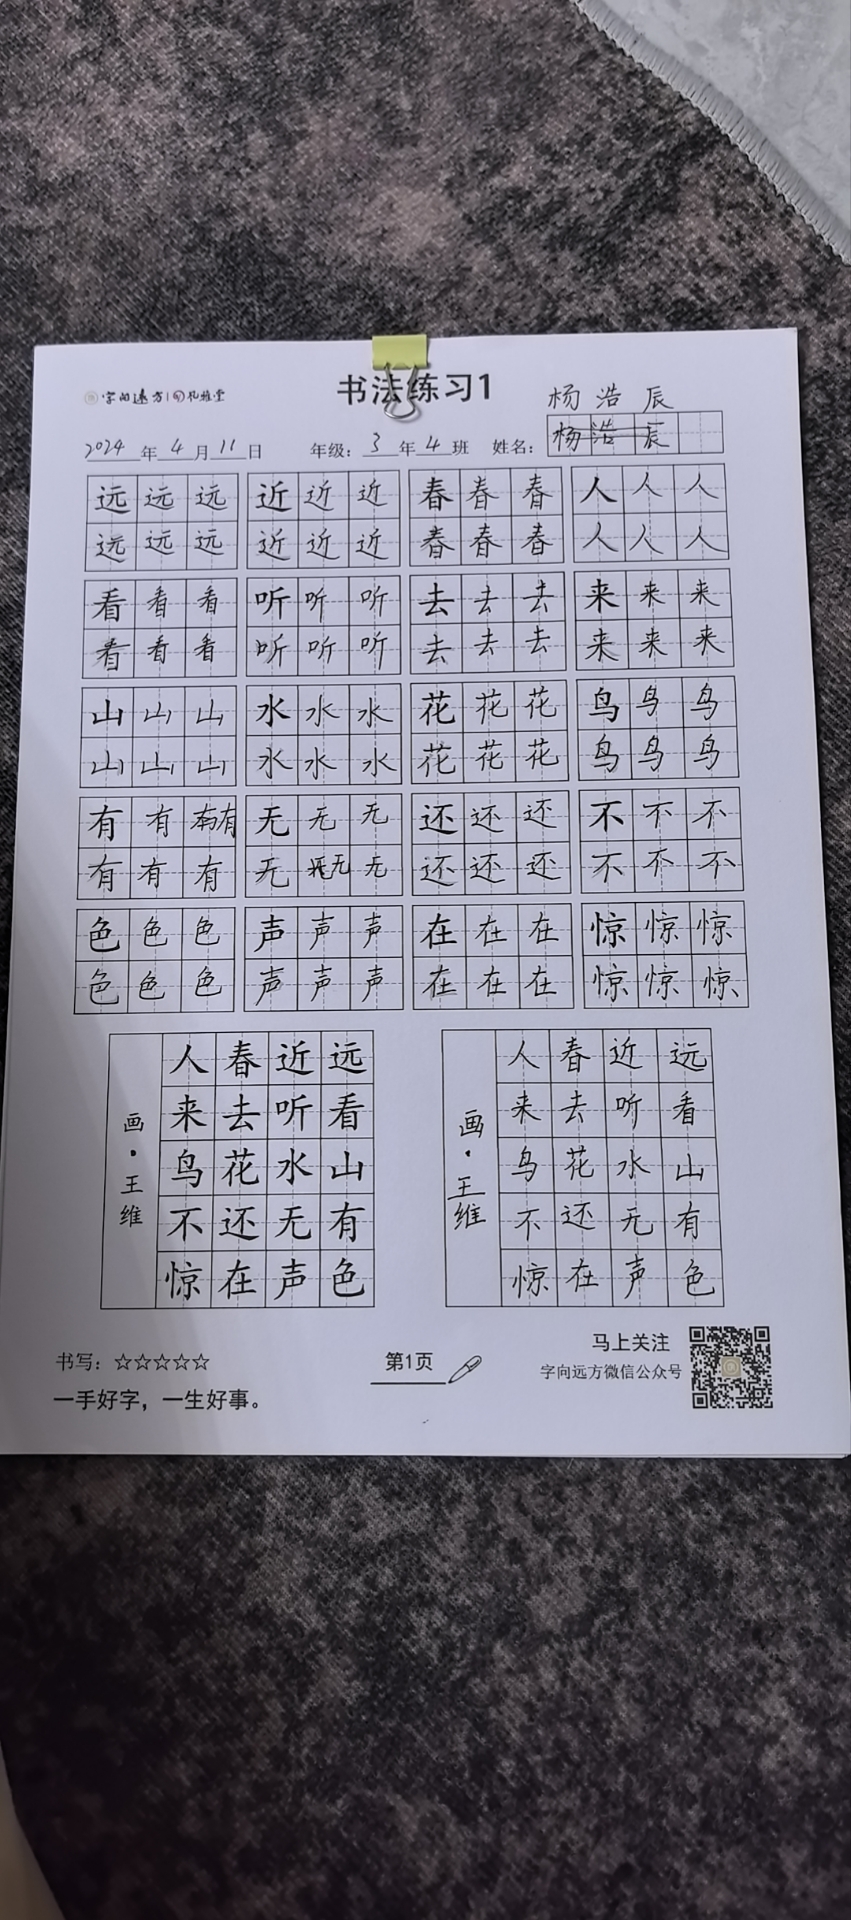 字向远方 礼雅堂
书法练习1
杨浩辰
2024年4月11日 年级：3年4班 姓名：杨浩辰
远远远 近近近 春春春 人人人
远远远 近近近 春春春 人人人
看看看 听听听 去去去 来来来
看看看 听听听 去去去 来来来
山山山 水水水 花花花 鸟鸟鸟
山山山 水水水 花花花 鸟鸟鸟
有有有 无无无 还还还 不不不
有有有 无无无 还还还 不不不
色色色 声声声 在在在 惊惊惊
色色色 声声声 在在在 惊惊惊
远看山有色
近听水无声
春去花还在
人来鸟不惊
画·王维
远看山有色
近听水无声
春去花还在
人来鸟不惊
画·王维
书写：☆☆☆☆☆
一手好字，一生好事。
第1页
马上关注
字向远方微信公众号